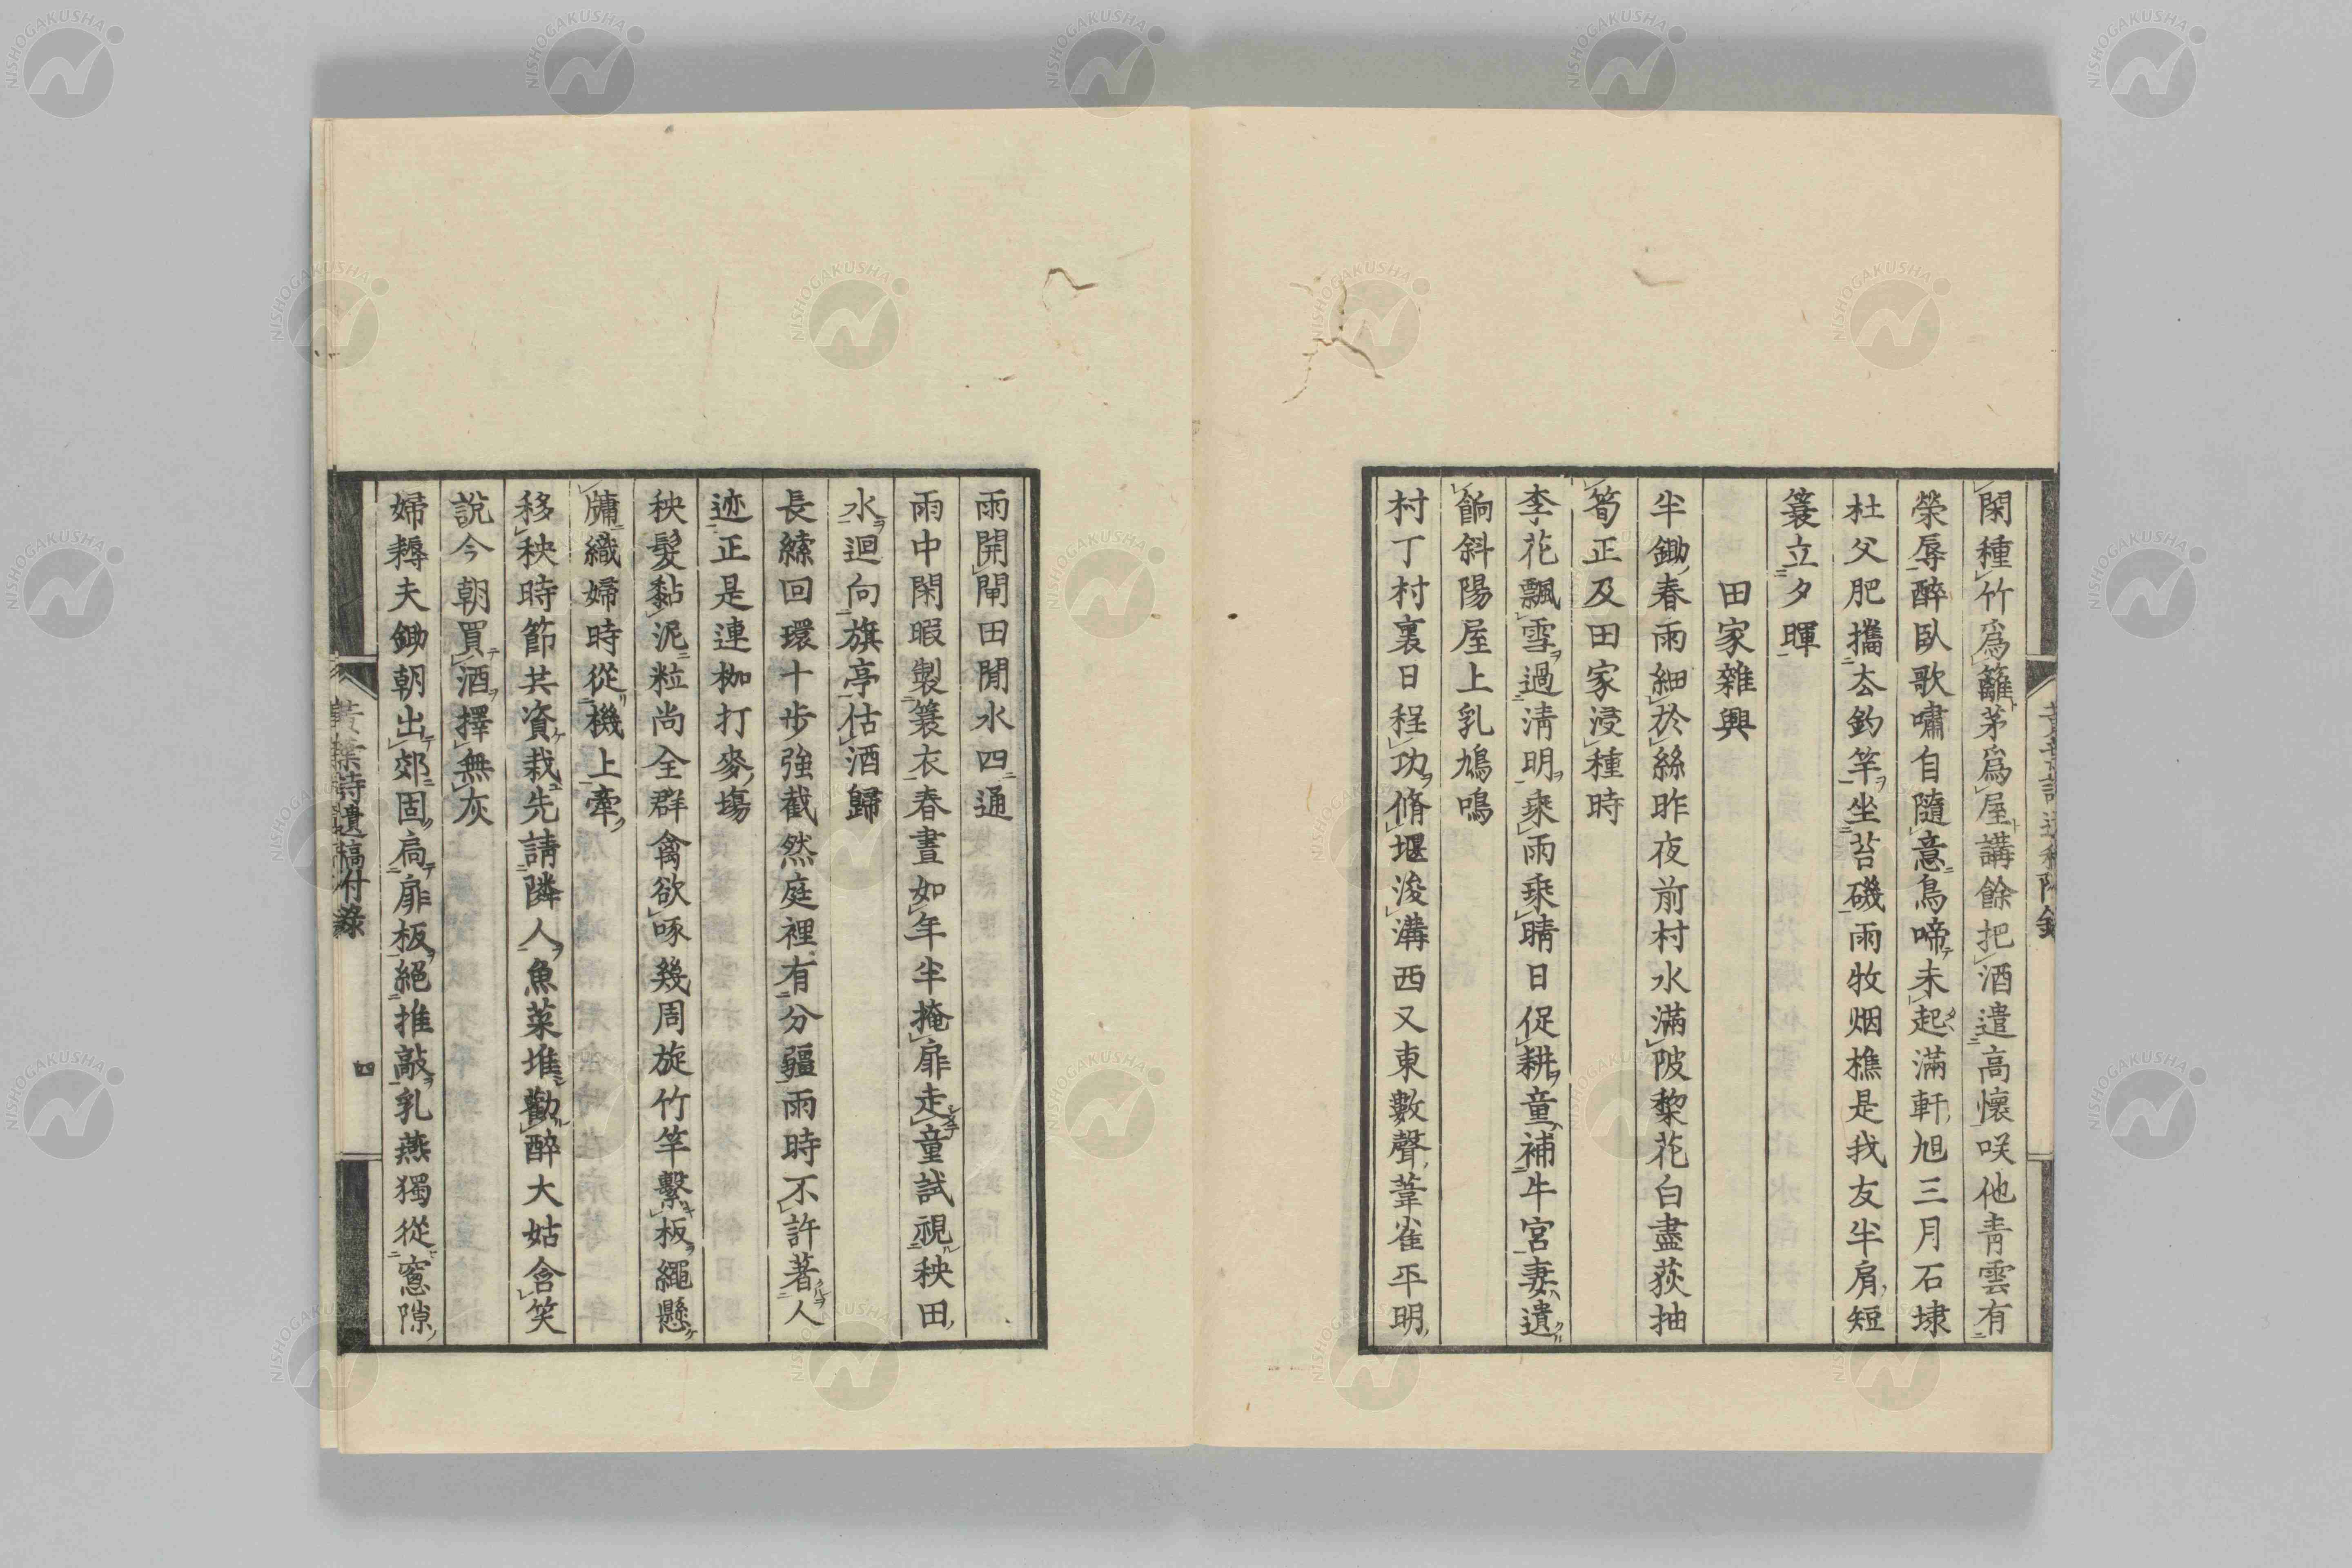 閑種竹爲籬茅爲屋講餘把酒遣高懷咲他靑雲有
榮辱醉臥歌嘯自隨意鳥啼未起滿軒旭三月石埭
杜父肥攜厺釣竿坐苔磯雨牧烟樵是我友半肩短
簑立夕暉
田家雜興
半鋤春雨細於絲昨夜前村水滿陂黎花白盡荻抽
筍正及田家浸種時
李花飄雪過淸明乘雨乘晴日促耕童補牛宮妻遺
餉斜陽屋上乳鳩鳴
村丁村裏日程功脩堰浚溝西又東數聲葦雀平明
雨開閘田閒水四通
雨中閑暇製簑衣春晝如年半掩扉走童試視秧田
水迴向旗亭估酒歸
長縤回環十步強截然庭裡有分疆雨時不許著人
迹正是連枷打麥塲
秧髮黏泥粒尚全群禽欲啄幾周旋竹竿繫板繩懸
牗織婦時從機上牽
移秧時節共資栽先請隣人魚菜堆勸醉大姑含笑
說今朝買酒擇無灰
婦耨夫鋤朝出郊固扃扉板絕推敲乳燕獨從窻隙
黄葉詩遺稿付錄
四
NISHOGAKUSHA